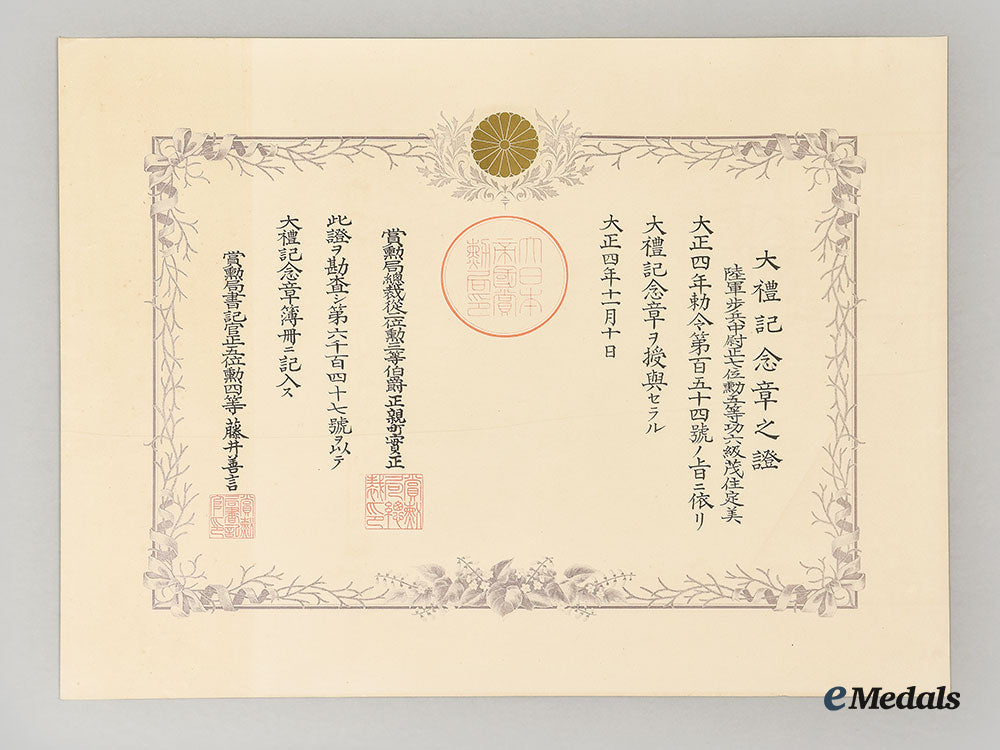 大禮記念章之證
陸軍步兵中尉正七位勲五等功六級茂住定美
大正四年勅令第百五十四號ノ上旨ニ依リ
大禮記念章ヲ授與セラル
大正四年十一月十日
大日本
帝國賞
勲局印
賞勲局總裁從二位勲三等伯爵正親町實正
賞勲
局總
裁印
此證ヲ勘査シ第六千百四十七號ヲ以テ
大禮記念章簿冊ニ記入ス
賞勲局書記官正五位勲四等藤井善言
賞勲
局書記
官印
eMedals